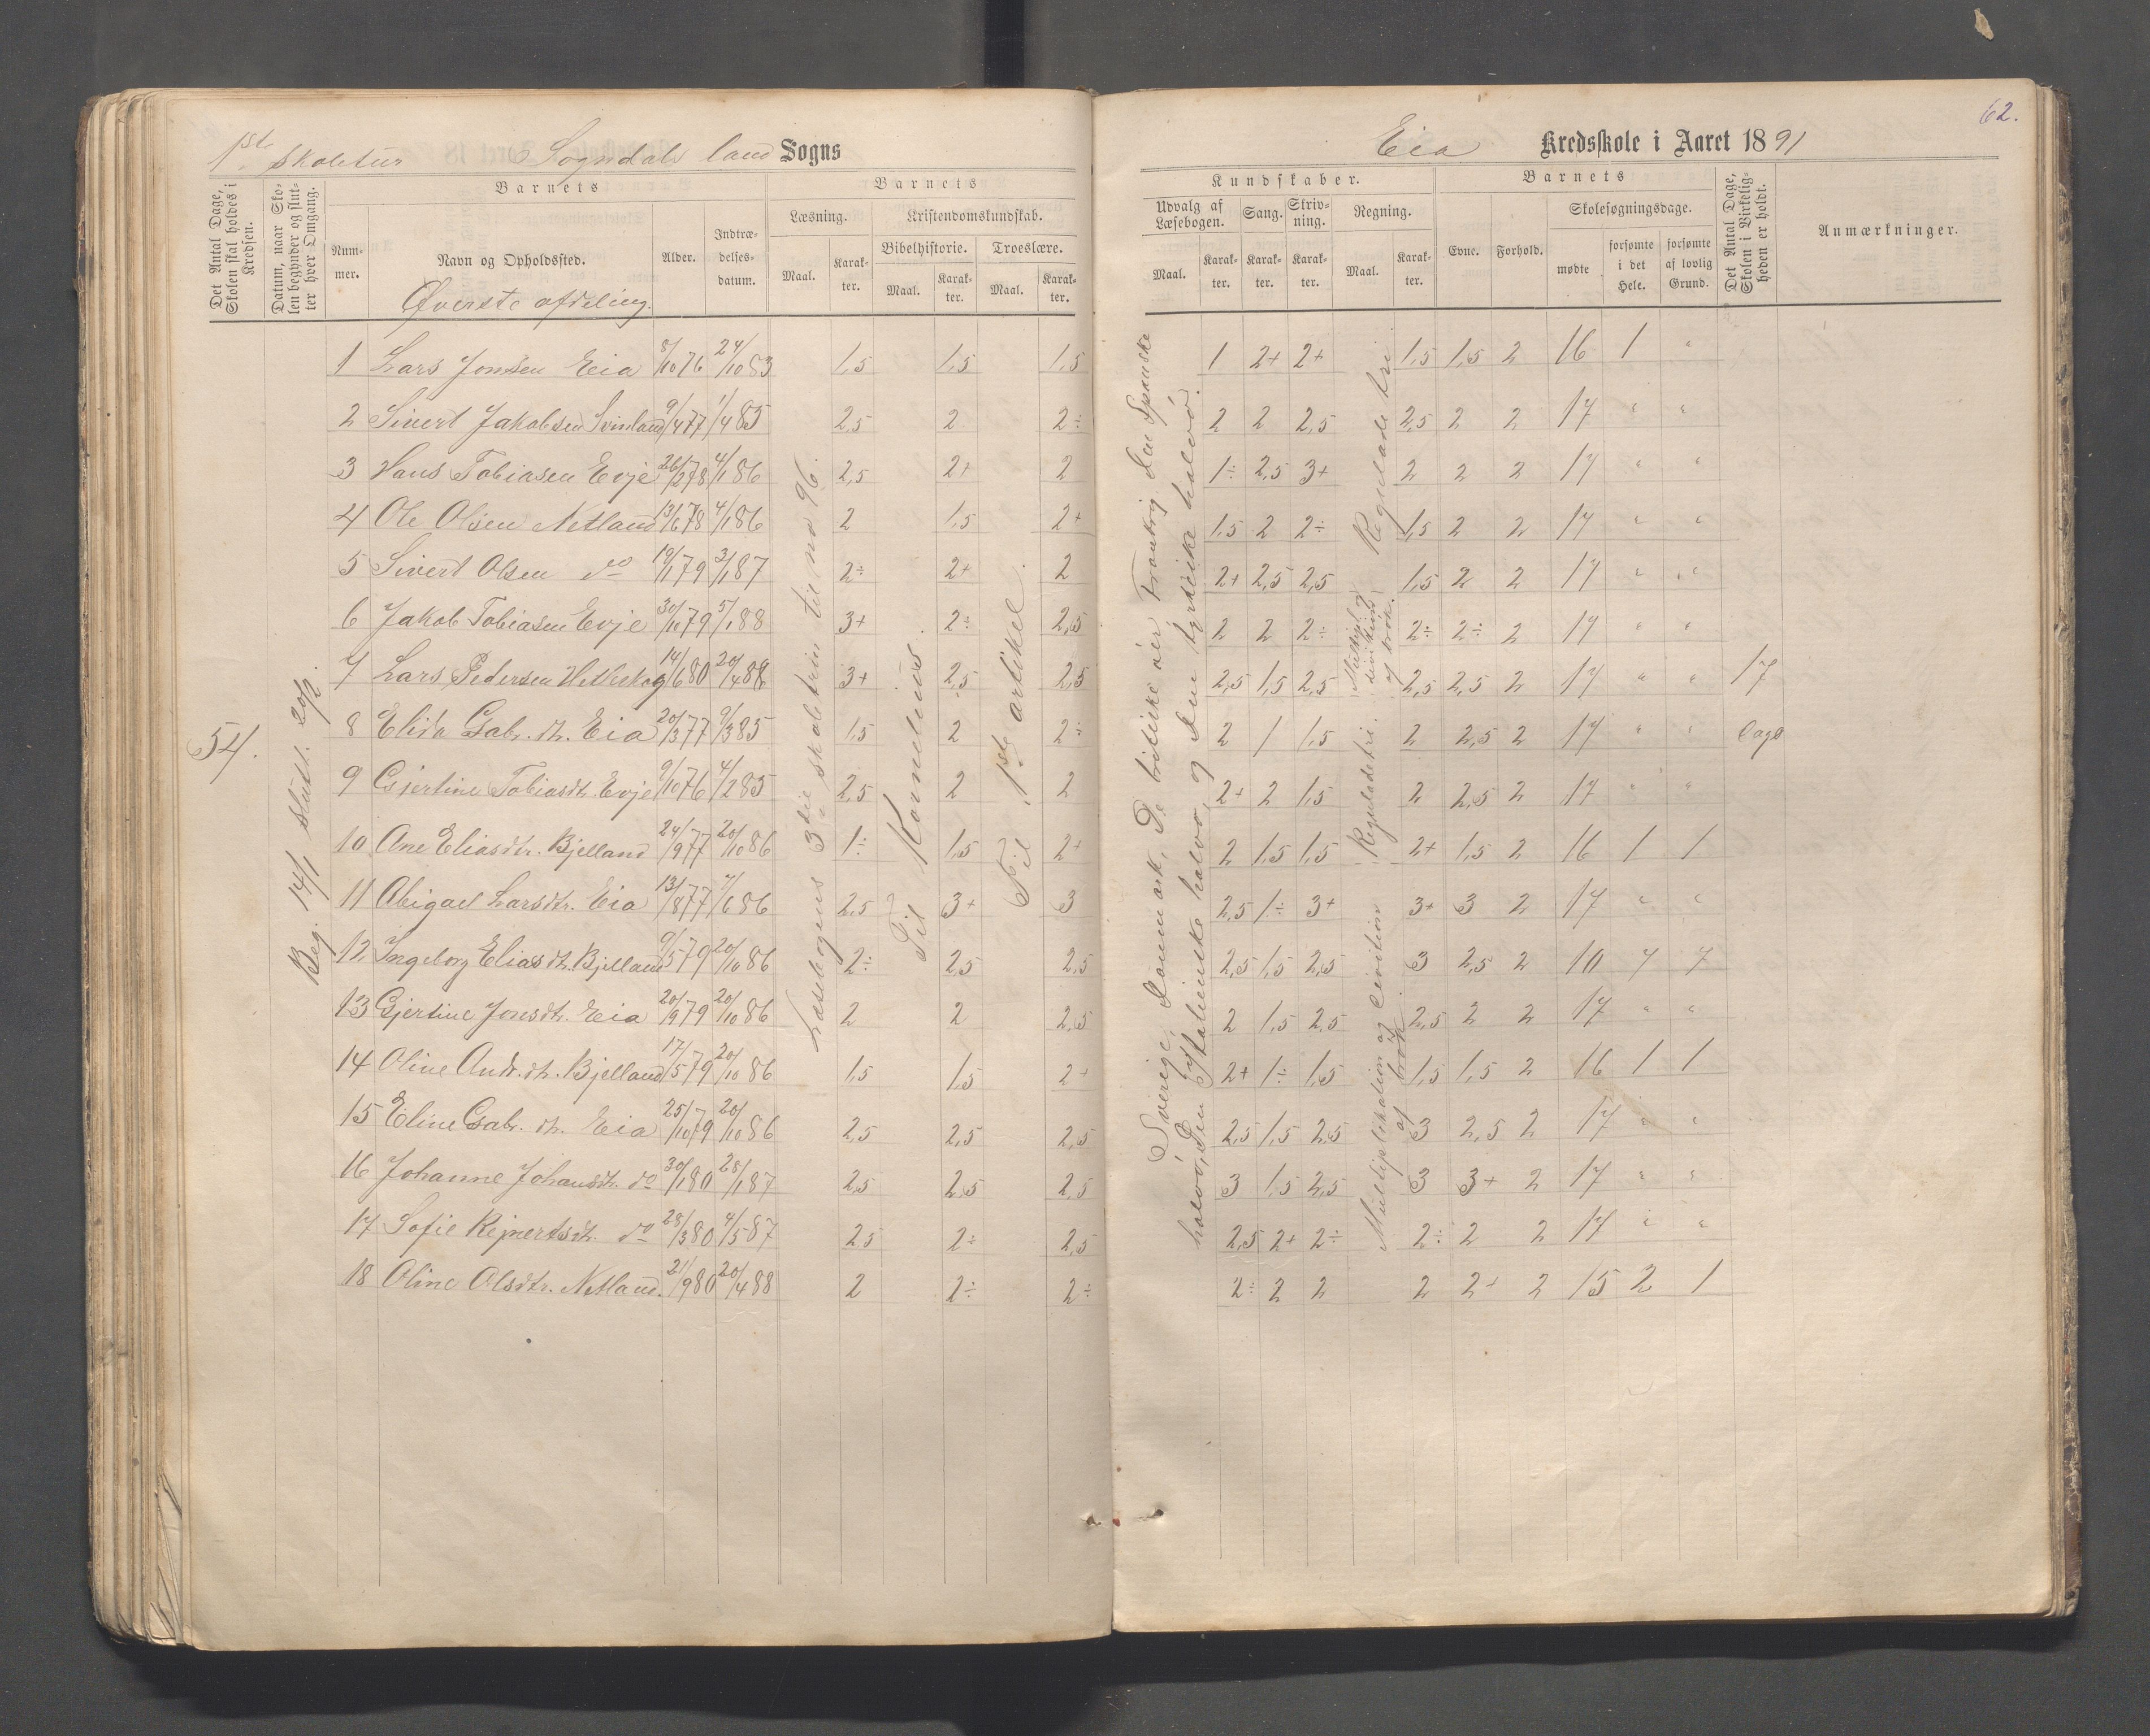 62.
1ste Skoletur Sogndals land Sogns
Eia Kredsskole i Aaret 1891
Det Antal Dage, Skolen skal holdes i Kredsen.
Datum, naar Skolen begynder og slutter hver Omgang.
Barnets
Nummer.
Navn og Opholdssted.
Alder.
Indtrædelsesdatum.
Barnets
Læsning.
Maal.
Karakter.
Kristendomskundskab.
Bibelhistorie.
Maal.
Karakter.
Troeslære.
Maal.
Karakter.
Kundskaber.
Udvalg af Læsebogen.
Maal.
Karakter.
Sang.
Karakter.
Skrivning.
Karakter.
Regning.
Maal.
Karakter.
Barnets
Evne.
Forhold.
Skolesøgningsdage.
mødte
forsømte i det Hele.
forsømte af lovlig Grund.
Det Antal Dage, Skolen i Virkeligheden er holdt.
Anmærkninger.
Øverste afdeling.
54.
Beg. 14/1 slut. 20/2.
Læsebogens 3die skoletrin til no 96.
Til Kornelius.
Til 1ste artikel.
Sverige, Danmark, De britiske øer Frankrig den Spanske
halvø, Den Italienske halvø, og Den tyrkiske halvø.
Reguladetri
Multipl. og division af brøk.
Reguladetri.
Multiplikation og division af brøk
17 dage
1 Lars Jonsen Eia 8/10 76 24/10 83 1,5 1,5 1,5 1 2+ 2+ 1,5 1,5 2 16 1 "
2 Sivert Jakobsen Svinland 9/4 77 1/4 85 2,5 2 2÷ 2 2 2,5 2,5 2 2 17 " "
3 Hans Tobiasen Evje 26/2 78 4/1 86 2,5 2+ 2 1÷ 2,5 3+ 2 2 2 17 " "
4 Ole Olsen Netland 13/6 78 4/1 86 2 1,5 2+ 1,5 2 2÷ 1,5 2 2 17 " "
5 Sivert Olsen do 19/1 79 3/1 87 2÷ 2+ 2 2+ 2,5 2,5 1,5 2 2 17 " "
6 Jakob Tobiasen Evje 30/10 79 5/1 88 3+ 2÷ 2,5 2 2 2÷ 2÷ 2÷ 2 17 " "
7 Lars Pedersen Helleskog 14/6 80 20/4 88 3+ 2,5 2,5 2,5 1,5 2,5 2,5 2,5 2 17 " "
8 Elida Gab. dt. Eia 20/3 77 9/3 85 1,5 2 2÷ 2 1 1,5 2 2,5 2 17 " "
9 Gjertine Tobiasdt. Evje 9/10 76 4/2 85 2,5 2 2 2+ 2 1,5 2 2,5 2 17 " "
10 Ane Eliasdtr. Bjelland 24/9 77 20/10 86 1÷ 1,5 2+ 2 1,5 1,5 2+ 1,5 2 16 1 1
11 Abigael Larsdtr. Eia 13/8 77 7/6 86 2,5 3+ 3 2,5 1÷ 3+ 3+ 3 2 17 " "
12 Ingeborg Elias dt. Bjelland 9/5 79 20/10 86 2÷ 2,5 2,5 2,5 1,5 2,5 3 2,5 2 10 7 7
13 Gjertine Jonsdt. Eia 20/9 79 20/10 86 2 2 2,5 2 1,5 2,5 2,5 2 2 17 " "
14 Oline Andr. dt. Bjelland 17/5 79 20/10 86 1,5 1,5 2+ 2+ 1÷ 1,5 1,5 1,5 2 16 1 1
15 Eline Gab. dt. Eia 25/10 79 20/10 86 2,5 2,5 2,5 2,5 1,5 2,5 3 2,5 2 17 " "
16 Johanne Johansdt. do 30/1 80 28/1 87 2,5 2,5 2,5 3 1,5 2,5 3 3+ 2 17 " "
17 Sofie Rejnertsdt. do 28/3 80 4/5 87 2,5 2÷ 2,5 2,5 2+ 2÷ 2÷ 2 2 17 " "
18 Oline Olsdtr. Netland. 21/9 80 20/4 88 2 2÷ 2÷ 2÷ 2 2 2 2+ 2 15 2 1